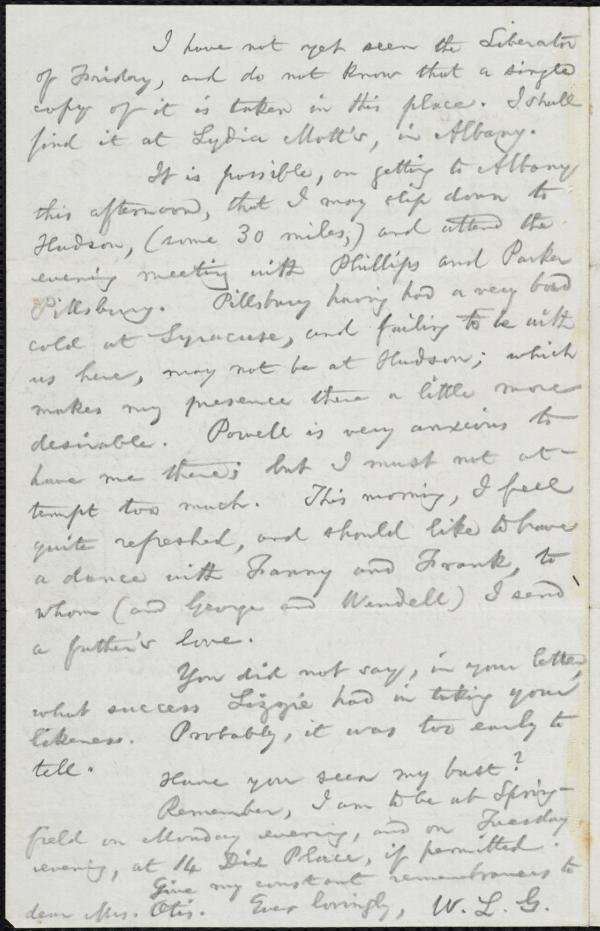 I have not yet seen the Liberator
of Friday, and do not know that a single
copy of it is taken in this place. I shall
find it at Lydia Mott's, in Albany.
It is possible, on getting to Albany
this afternoon, that I may slip down to
Hudson, (some 30 miles,) and attend the
evening meeting with Phillips and Parker
Pillsbury. Pillsbury having had a very bad
cold at Syracuse, and failing to be with
us here, may not be at Hudson; which
makes my presence there a little more
desirable. Powell is very anxious to
have me there; but I must not at-
tempt too much. This morning, I feel
quite refreshed, and should like to have
a dance with Fanny and Frank, to
whom (and George and Wendell) I send
a father's love.
You did not say, in your letter,
what success Lizzie had in taking your
likeness. Probably, it was too early to
tell.
Have you seen my bust?
Remember, I am to be at Spring-
field on Monday evening, and on Tuesday
evening, at 14 Dix Place, if permitted.
Give my constant remembrances to
dear Mrs. Otis. Ever lovingly, W. L. G.